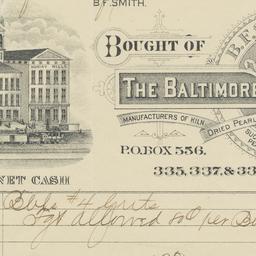 B.F. SMITH.
BOUGHT OF
B.F.S
THE BALTIMORE
HOMINY MILLS
MANUFACTURERS OF KILN
DRIED PEARL
P.O. BOX 556.
335, 337, & 33
NET CASH
Bbls #4 Grits
Fgt allowed 50¢ per B